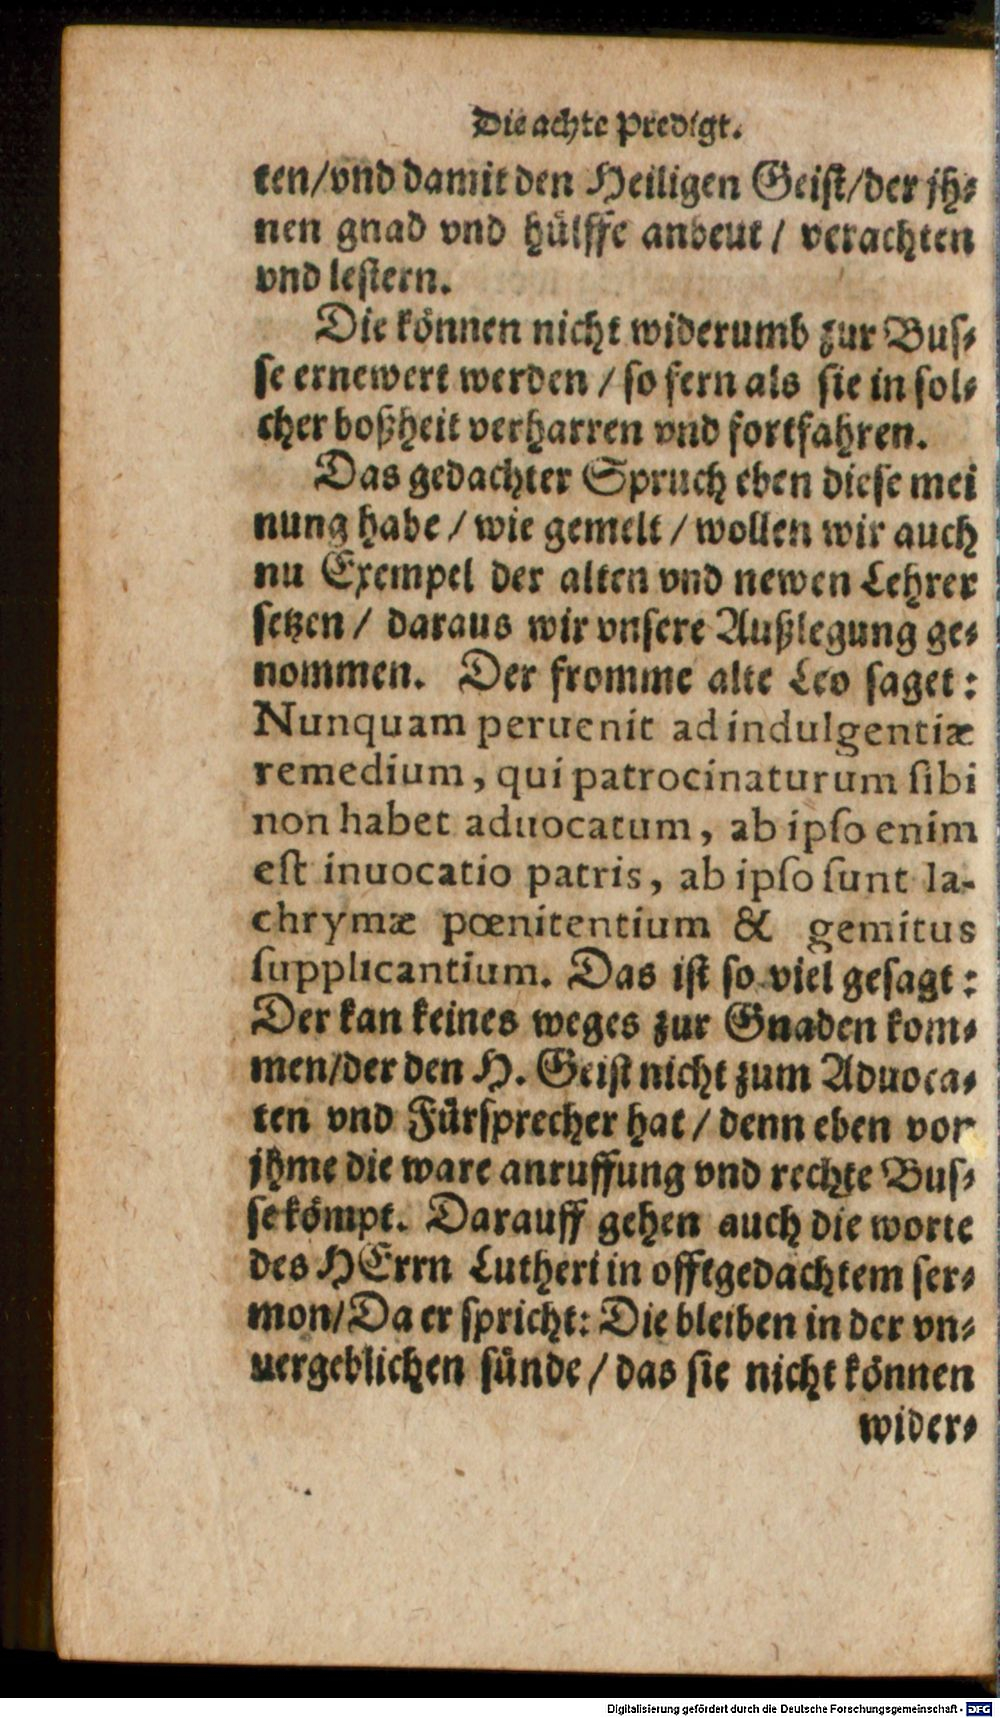 Die achte Predigt.
ten/vnd damit den Heiligen Geist/der jh-
nen gnad vnd hülffe anbeut / verachten
vnd lestern.
Die können nicht widerumb zur Bus-
se ernewert werden / so fern als sie in sol-
cher boßheit verharren vnd fortfahren.
Das gedachter Spruch eben diese mei
nung habe / wie gemelt / wollen wir auch
nu Exempel der alten vnd newen Lehrer
setzen / daraus wir vnsere Außlegung ge-
nommen. Der fromme alte Leo saget:
Nunquam peruenit ad indulgentiæ
remedium, qui patrocinaturum sibi
non habet aduocatum, ab ipso enim
est inuocatio patris, ab ipso sunt la-
chrymæ pœnitentium & gemitus
supplicantium. Das ist so viel gesagt:
Der kan keines weges zur Gnaden kom-
men/der den H. Geist nicht zum Aduoca-
ten vnd Fürsprecher hat / denn eben von
jhme die ware anruffung vnd rechte Bus-
se kömpt. Darauff gehen auch die worte
des HErrn Lutheri in offtgedachtem ser-
mon/Da er spricht: Die bleiben in der vn-
uergeblichen sünde / das sie nicht können
wider-
Digitalisierung gefördert durch die Deutsche Forschungsgemeinschaft - DFG